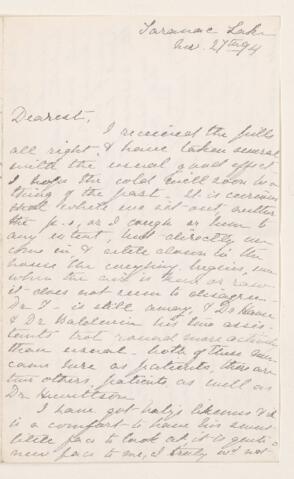 Saranac Lake
Nov. 27th 94
Dearest,
I received the pills
all right & have taken several
with the usual good effect
I hope the cold will soon be a
thing of the past. It is curious
that when we sit out neither
the p.s, or I cough or hem to
any extent, but directly we
come in & settle down in the
house the coughing begins, even
when the air is hard or raw
it does not seem to disagree.
Dr T - is still away, & Dr
& Dr Baldwin his two assis-
tants trot round more actively
than usual - both of these men
came here as patients, there are
two others, patients as well as
Dr
I have got baby's likeness & it
is a comfort to have his sweet
little face to look at it is quite a
new face to me, I truly w'd not